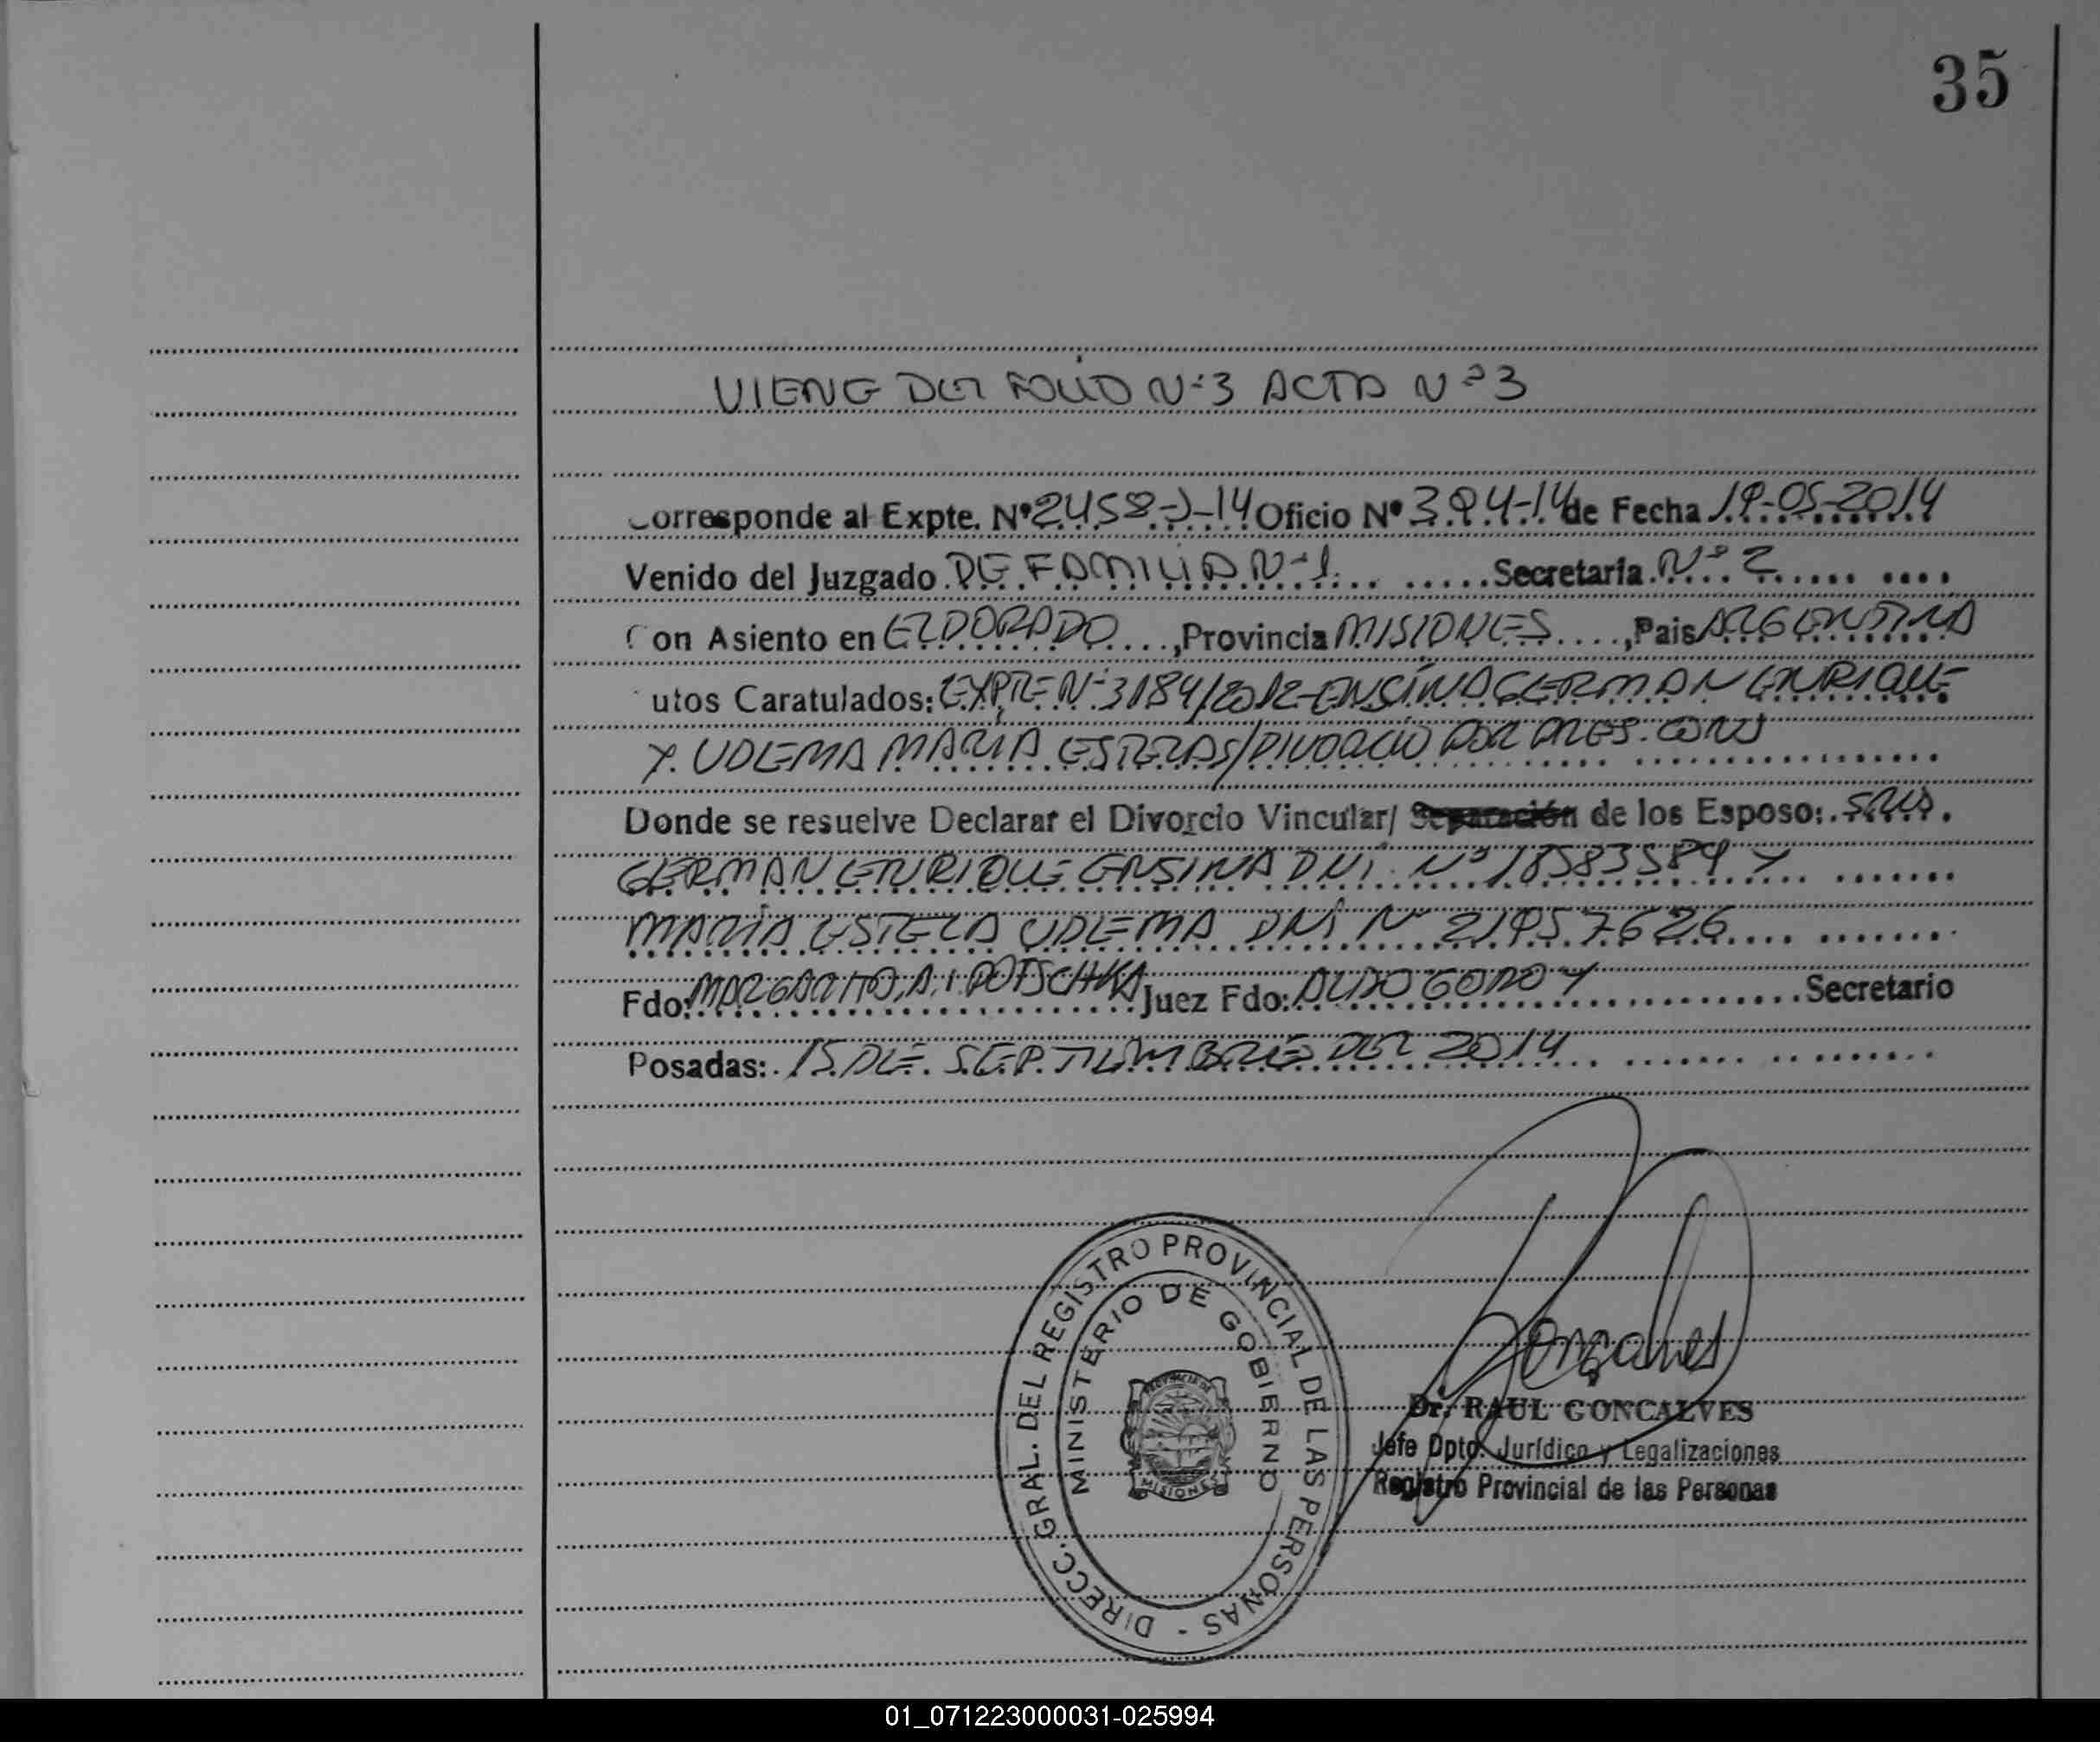 35
VIENE DEL FOLIO Nº3 ACTA Nº3
Corresponde al Expte. Nº 2458-J-14 Oficio Nº 394-14 de Fecha 19-05-2014
Venido del Juzgado DE FAMILIA Nº1 Secretaría Nº 2
Con Asiento en ELDORADO, Provincia MISIONES, Pais ARGENTINA
utos Caratulados: EXPTE Nº 3184/2012-ENSINA GERMAN ENRIQUE
Y UDLEMA MARIA ESTELA S/DIVORCIO POR PRES. CONJ
Donde se resuelve Declarar el Divorcio Vincular/ Separación de los Esposo:
GERMAN ENRIQUE ENSINA DNI Nº 18583589 Y
MARÍA ESTELA UDLEMA DNI Nº 21957626
Fdo: A.I. POTSCHKA Juez Fdo: ALDO GODOY Secretario
Posadas: 15 DE SEPTIEMBRE DEL 2014
DIRECC. GRAL. DEL REGISTRO PROVINCIAL DE LAS PERSONAS -
MINISTERIO DE GOBIERNO
PROVINCIA DE
MISIONES
Goncalves
Dr. RAUL GONCALVES
Jefe Dpto. Jurídico y Legalizaciones
Registro Provincial de las Personas
01_071223000031-025994